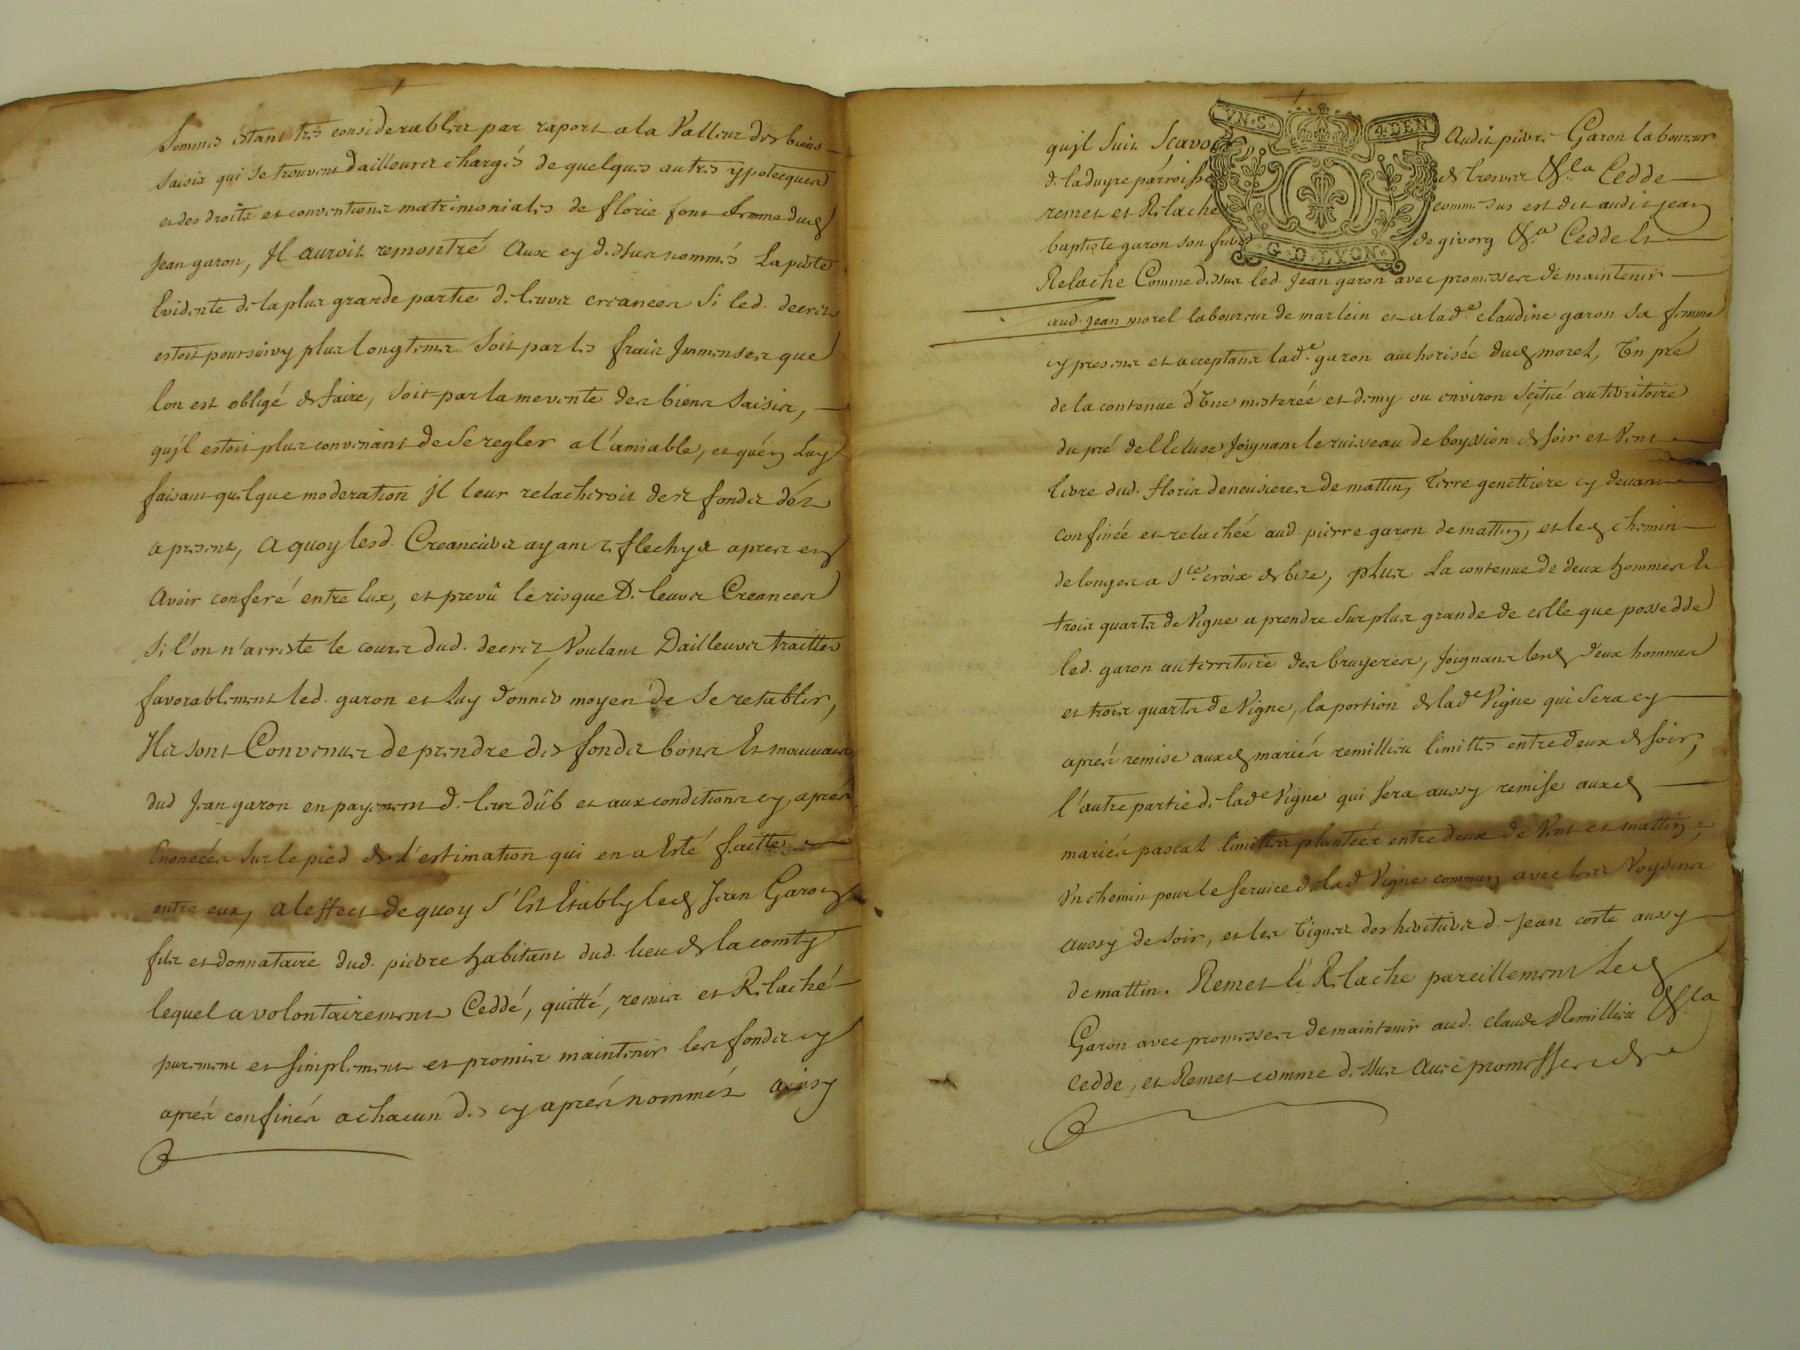 Sommes estant tres considerables par raport a la Valleur des biens
saisis qui se trouvent dailleurs chargés de quelques autres ypoteques
et des droits et conventions matrimonialles de florie font femme dud
Jean garon, Il auroit remontré Aux cy dessus nommés La perte
Evidente de la plus grande partie de leurs creances Si led. decret
estoit poursuivy plus longtems Soit par les frais Immenses que
lon est obligé de faire, soit par la mevente des biens saisis,
quil estoit plus convenant de se regler a l'amiable, et quén Luy
faisant quelque moderation Il leur relacheroit des fonds dés
a present, A quoy lesd. Creanciers ayant reflechy et apres en
Avoir conferé entre Eux, et prevû le risque De leurs Creances
Si l'on n'arreste le cours dud. decret, Voulant Dailleurs traitter
favorablement led. garon et Luy donner moyen de se restablir,
Ils sont Convenus de prendre des fonds bons Et mauvais
dud Jean garon en payement de leur dûb et aux conditions cy aprés
Enoncées sur le pied de l'estimation qui en a Esté faitte
entre eux, a leffect de quoy s'Est Etably led Jean Garon
fils et donnataire dud. pierre habitant dud. lieu de la comty
lequel a volontairement Ceddé, quitté, remis et Relaché
purement et simplement et promis maintenir les fonds cy
aprés confinés a chacun des cy aprés nommés ainsy
quil suit Scavoir Audit pierre Garon laboureur
de laduyre paroisse de tresve &.la Cedde
remet et Relache comme dessus est dit audit jean
baptiste garon son frere de givors &.a Cedde Et
Relache Comme dessus led. Jean garon avec promesses de maintenir
aud. jean morel laboureur de marlein et a lad.e claudine garon sa femme
cy present et acceptans lad.e garon authorisée dud morel, Un pré
de la contenue d'Une mesterée et demy ou environ scitué au territoire
du pré de l'Ecluse Joignant le ruisseau de boyssion de soir et Vent
terre dud. floris de matting, terre genettiere cy devant
confinée et relachée aud. pierre garon de matting, et led chemin
de longes a S.te croix de bize, plus La contenue de deux hommes Et
trois quarts de Vigne a prendre sur plus grande de celle que possedde
led. garon au territoire des bruyeres, Joignans lesd deux hommes
et trois quarts de Vigne, la portion de lad.e Vigne qui sera cy
aprés remise auxd mariés remillieu limittes entre deux de soir,
l'autre partie de lad.e Vigne qui sera aussy remise auxd
mariés pascal limittes plantées entre deux de Vent et matting,
Un chemin pour le service de lad Vigne commun avec les Voysins
aussy de soir, et les Vignes des heritiers de Jean corte aussy
de mattin. Remet Et Relache pareillement Led
Garon avec promesses de maintenir aud. claude Remillieu &.la
cedde, et Remet comme dessus Avec promesses de
VN.S. 4.DEN
G.D.LYON.